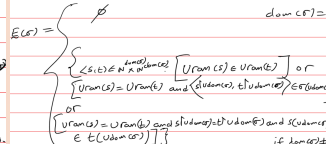 ∅ dom(σ)=
E(σ) =
{<s,t> ∈ N^dom(σ) × N^dom(σ) : [Uran(s) ∈ Uran(t)] or
[Uran(s) = Uran(t) and <s↾Udom(σ), t↾Udom(σ)> ∈ σ(Udom
or
[Uran(s) = Uran(t) and s↾Udom(σ)=t↾Udom(σ) and s(Udom(σ)
∈ t(Udom(σ))]}. if dom(σ)≠